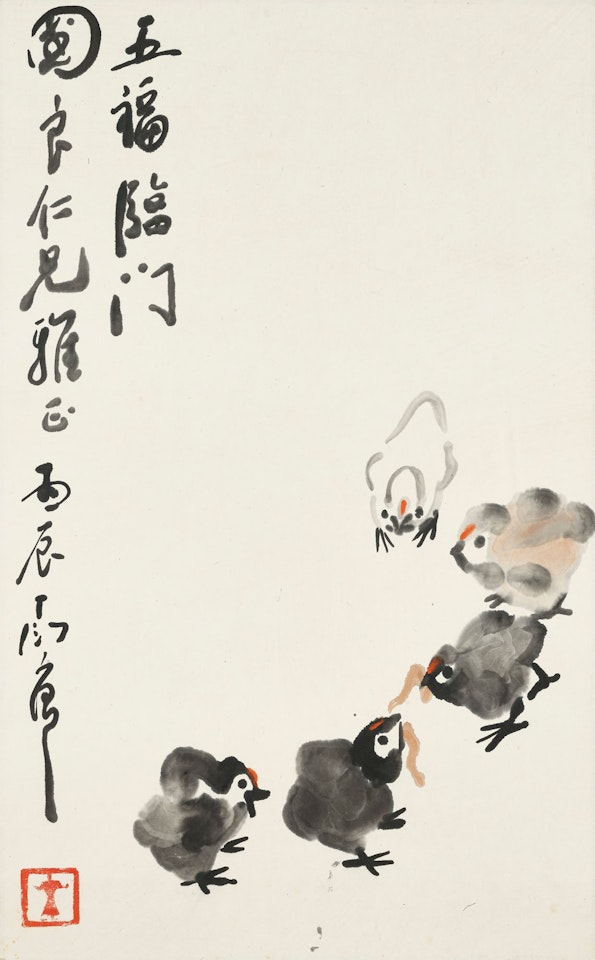 五福臨门
國良仁兄雅正 丙辰 丁衍庸